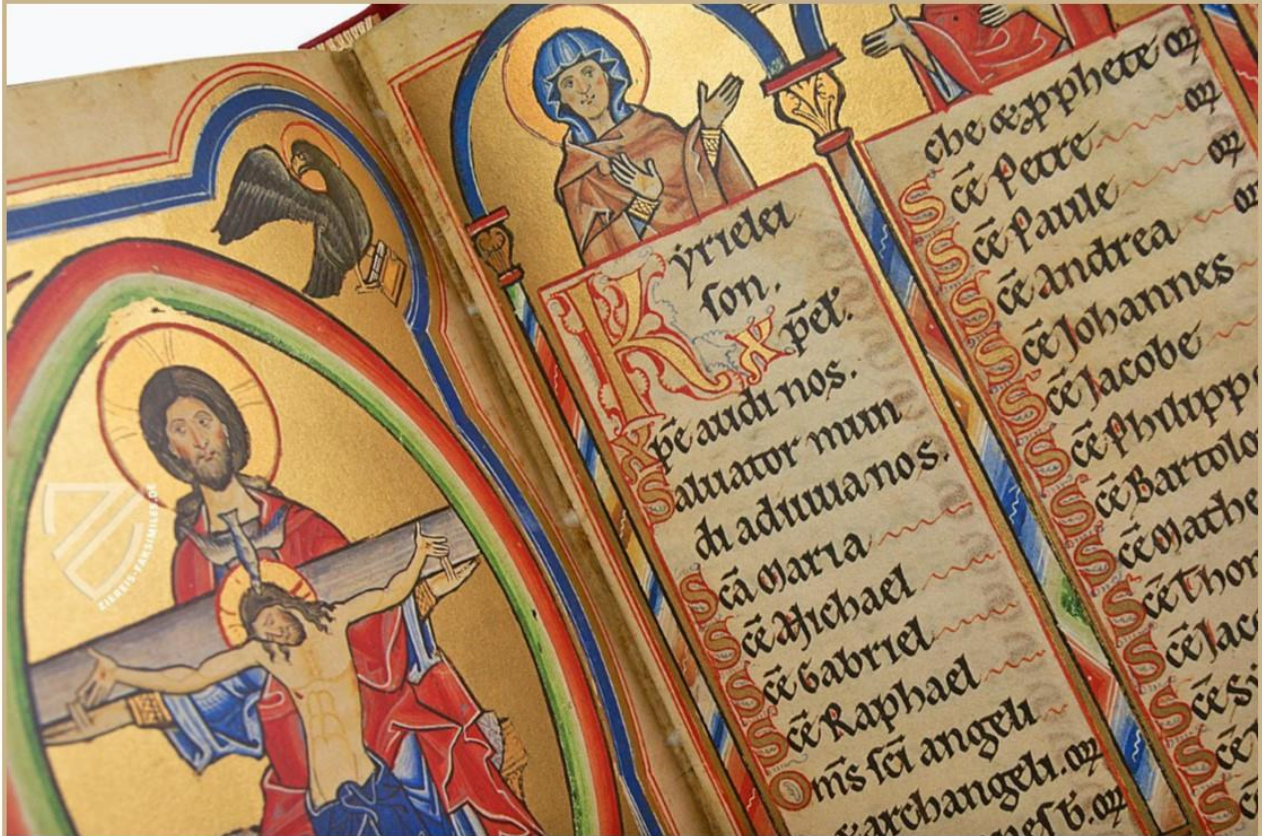 ZIEREIS-FAKSIMILES.DE
Kyrielei
son. xp̄el.
Xpē audi nos.
Saluator mun
di adiuua nos.
Sc̄a Maria
Sc̄e Michael
Sc̄e Gabriel
Sc̄e Raphael
Om̄s sc̄i angeli
& archangeli. or̄
che & pphete or̄
Sc̄e Petre or̄
Sc̄e Paule or̄
Sc̄e Andrea or̄
Sc̄e Johannes
Sc̄e Jacobe
Sc̄e Philipp
Sc̄e Bartolo
Sc̄e Mathe
Sc̄e Thom
Sc̄e Jaco
Sc̄e Si
Sc̄e